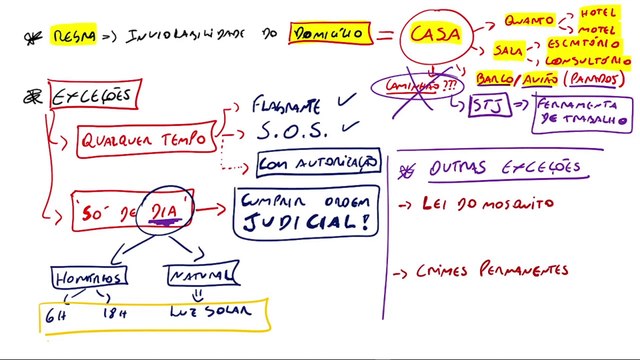 * REGRA => INVIOLABILIDADE DO DOMICÍLIO = CASA
QUARTO
HOTEL
MOTEL
SALA
ESCRITÓRIO
CONSULTÓRIO
BARCO/AVIÃO (PARADOS)
CAMINHÃO???
STJ => FERRAMENTA DE TRABALHO
* EXCEÇÕES
QUALQUER TEMPO
FLAGRANTE ✓
S.O.S. ✓
COM AUTORIZAÇÃO
"SÓ DE DIA" → CUMPRIR ORDEM
JUDICIAL!
HORÁRIOS
NATURAL
6H 18H
LUZ SOLAR
* OUTRAS EXCEÇÕES
→ LEI DO MOSQUITO
→ CRIMES PERMANENTES